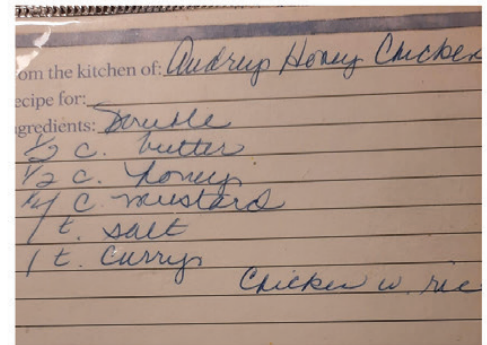 om the kitchen of: Audreys Honey Chicken
ecipe for:
ngredients: Double
1/2 c. butter
1/2 c. honey
1/4 c mustard
1 t. salt
1 t. Curry
Chicken w. rice